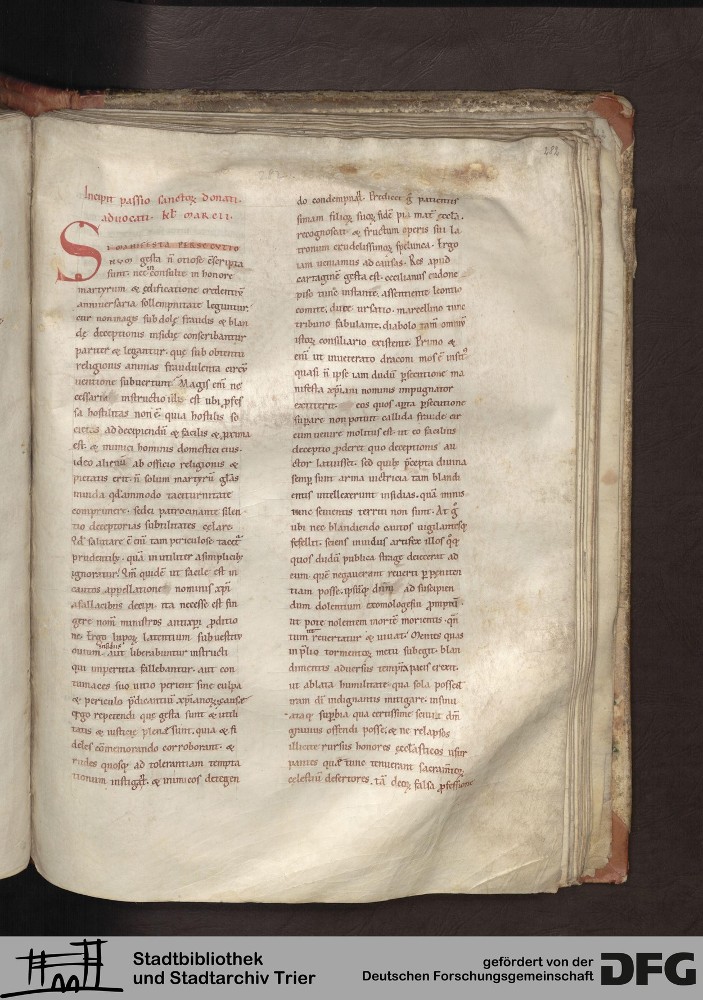 282
Incipit passio sanctoꝝ donati.
advocati. kł marcii.
SI MANIFESTA PERSECVTIO
num gesta n̄ otiose c̄scripta
sunt. nec in consulte in honore
martyrum & edificatione credentiū
anniversaria sollempnitate leguntur.
cur non magis sub dolę fraudis & blan
dę deceptionis insidię conscribantur
pariter & legantur. quę sub obtentu
religionis animas fraudulenta circū
ventione subvertunt. Magis eni ne
cessaria instructio illis est ubi ꝓfes
sa hostilitas non ē. quia hostilis so
cietas ad decipiendū & facilis & proxima
est. & inimici hominis domestici eius.
ideo alienū ab officio religionis &
pietatis erit. n̄ solum martyrū glās
inuida qdāmmodo taciturnitate
comprimere. sed ei patrocinante silen
tio deceptorias subtilitates celare.
Id salutare ē eni tam periculose tacet̄
prudentib; quā inutiliter a simplicib;
ignoratur. Qm̄ quidē ut facile est in
cautos appellatione nominis xp̄i
a fallacibus decipi. ita necesse est fin
gere nom̄ ministros antixp̄i ꝓditio
ne. Ergo lupoꝝ latentium sub vestitu
ovium insidiis aut liberabuntur instructi
qui imperitia fallebantur. aut con
tumaces suo vitio perient sine culpa
& periculo p̄dicantiū xp̄ianoꝝ causę
ergo repetendi quę gesta sunt & utili
tatis & iusticię plena sunt. quia & fi
deles cōmemorando corroborant. &
rudes quosq; ad tolerantiam tempta
tionum instigat̄. & inimicos detegen
do condempnat̄. Predicet g̊ patientis
simam filioꝝ suoꝝ fidē pia mat̄ ęccła.
recognoscat & fructum operis sui la
tronum crudelissimoꝝ spelunca. Ergo
iam veniamus ad causas. Res apud
cartaginē gesta est. ceciliani eudone
piso tunc instante. assentiente leontio
comite. duce ursatio. marcellino tunc
tribuno fabulante. diabolo tam̄ omniū
istoꝝ consiliario existente. Primo &
eni ut inveterato draconi mos ē insit̊
quasi n̄ ipse iam dudū ꝑsecutione ma
nifesta xp̄iani nominis impugnator
extiterit. eos quos aꝑta ꝑsecutione
suꝑare non potuit callida fraude cir
cumvenire molitus est. ut eo facilius
deceptio ꝓderet quo deceptionis au
ctor latuisset. sed quib; p̄cepta divina
semp̄ sunt arma victricia tam blandi
entis intellexerunt insidias. quā minis
tunc sevientis territi non sunt. At g̊
ubi nec blandiendo cautos vigilantesq;
fefellit. sciens invidus artifex illos q̊q;
quos dudū publica strage deiecerat ad
eum. quē negaverant reverti ꝑ peniten
tiam posse. ipsūq; dn̄m ad suscipien
dum dolentium exomologesin ꝓmptū.
ut pote nolentem mortē morientis. qn̄
tum ut revertatur & vivat. Mentes quas
in p̄lio tormentoꝝ metu subegit. blan
dimentis adversus temp̄ta pacis erexit.
ut ablata humilitate. qua sola posset
iram dī indignantis mitigare. insinu
ataq; suꝑbia qua certissime sciuit dm̄
gravius offendi posse. & ne relapsos
illicite rursus honores ęcclasticos usur
pantes quā tunc tenuerant sacramtoꝝ
celestiū desertores. tā decoꝝ falsa ꝓfessione
Stadtbibliothek
und Stadtarchiv Trier
gefördert von der
Deutschen Forschungsgemeinschaft
DFG